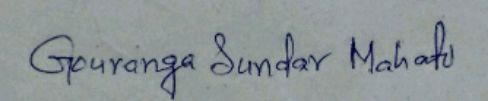 Gouranga Sundar Mahato